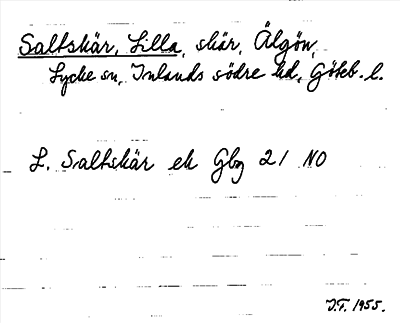 Saltskär, Lilla, skär, Älgön,
Lycke sn, Inlands södre hd, Göteb. l.
L. Saltskär ek Gbg 21 NO
J.F. 1955.